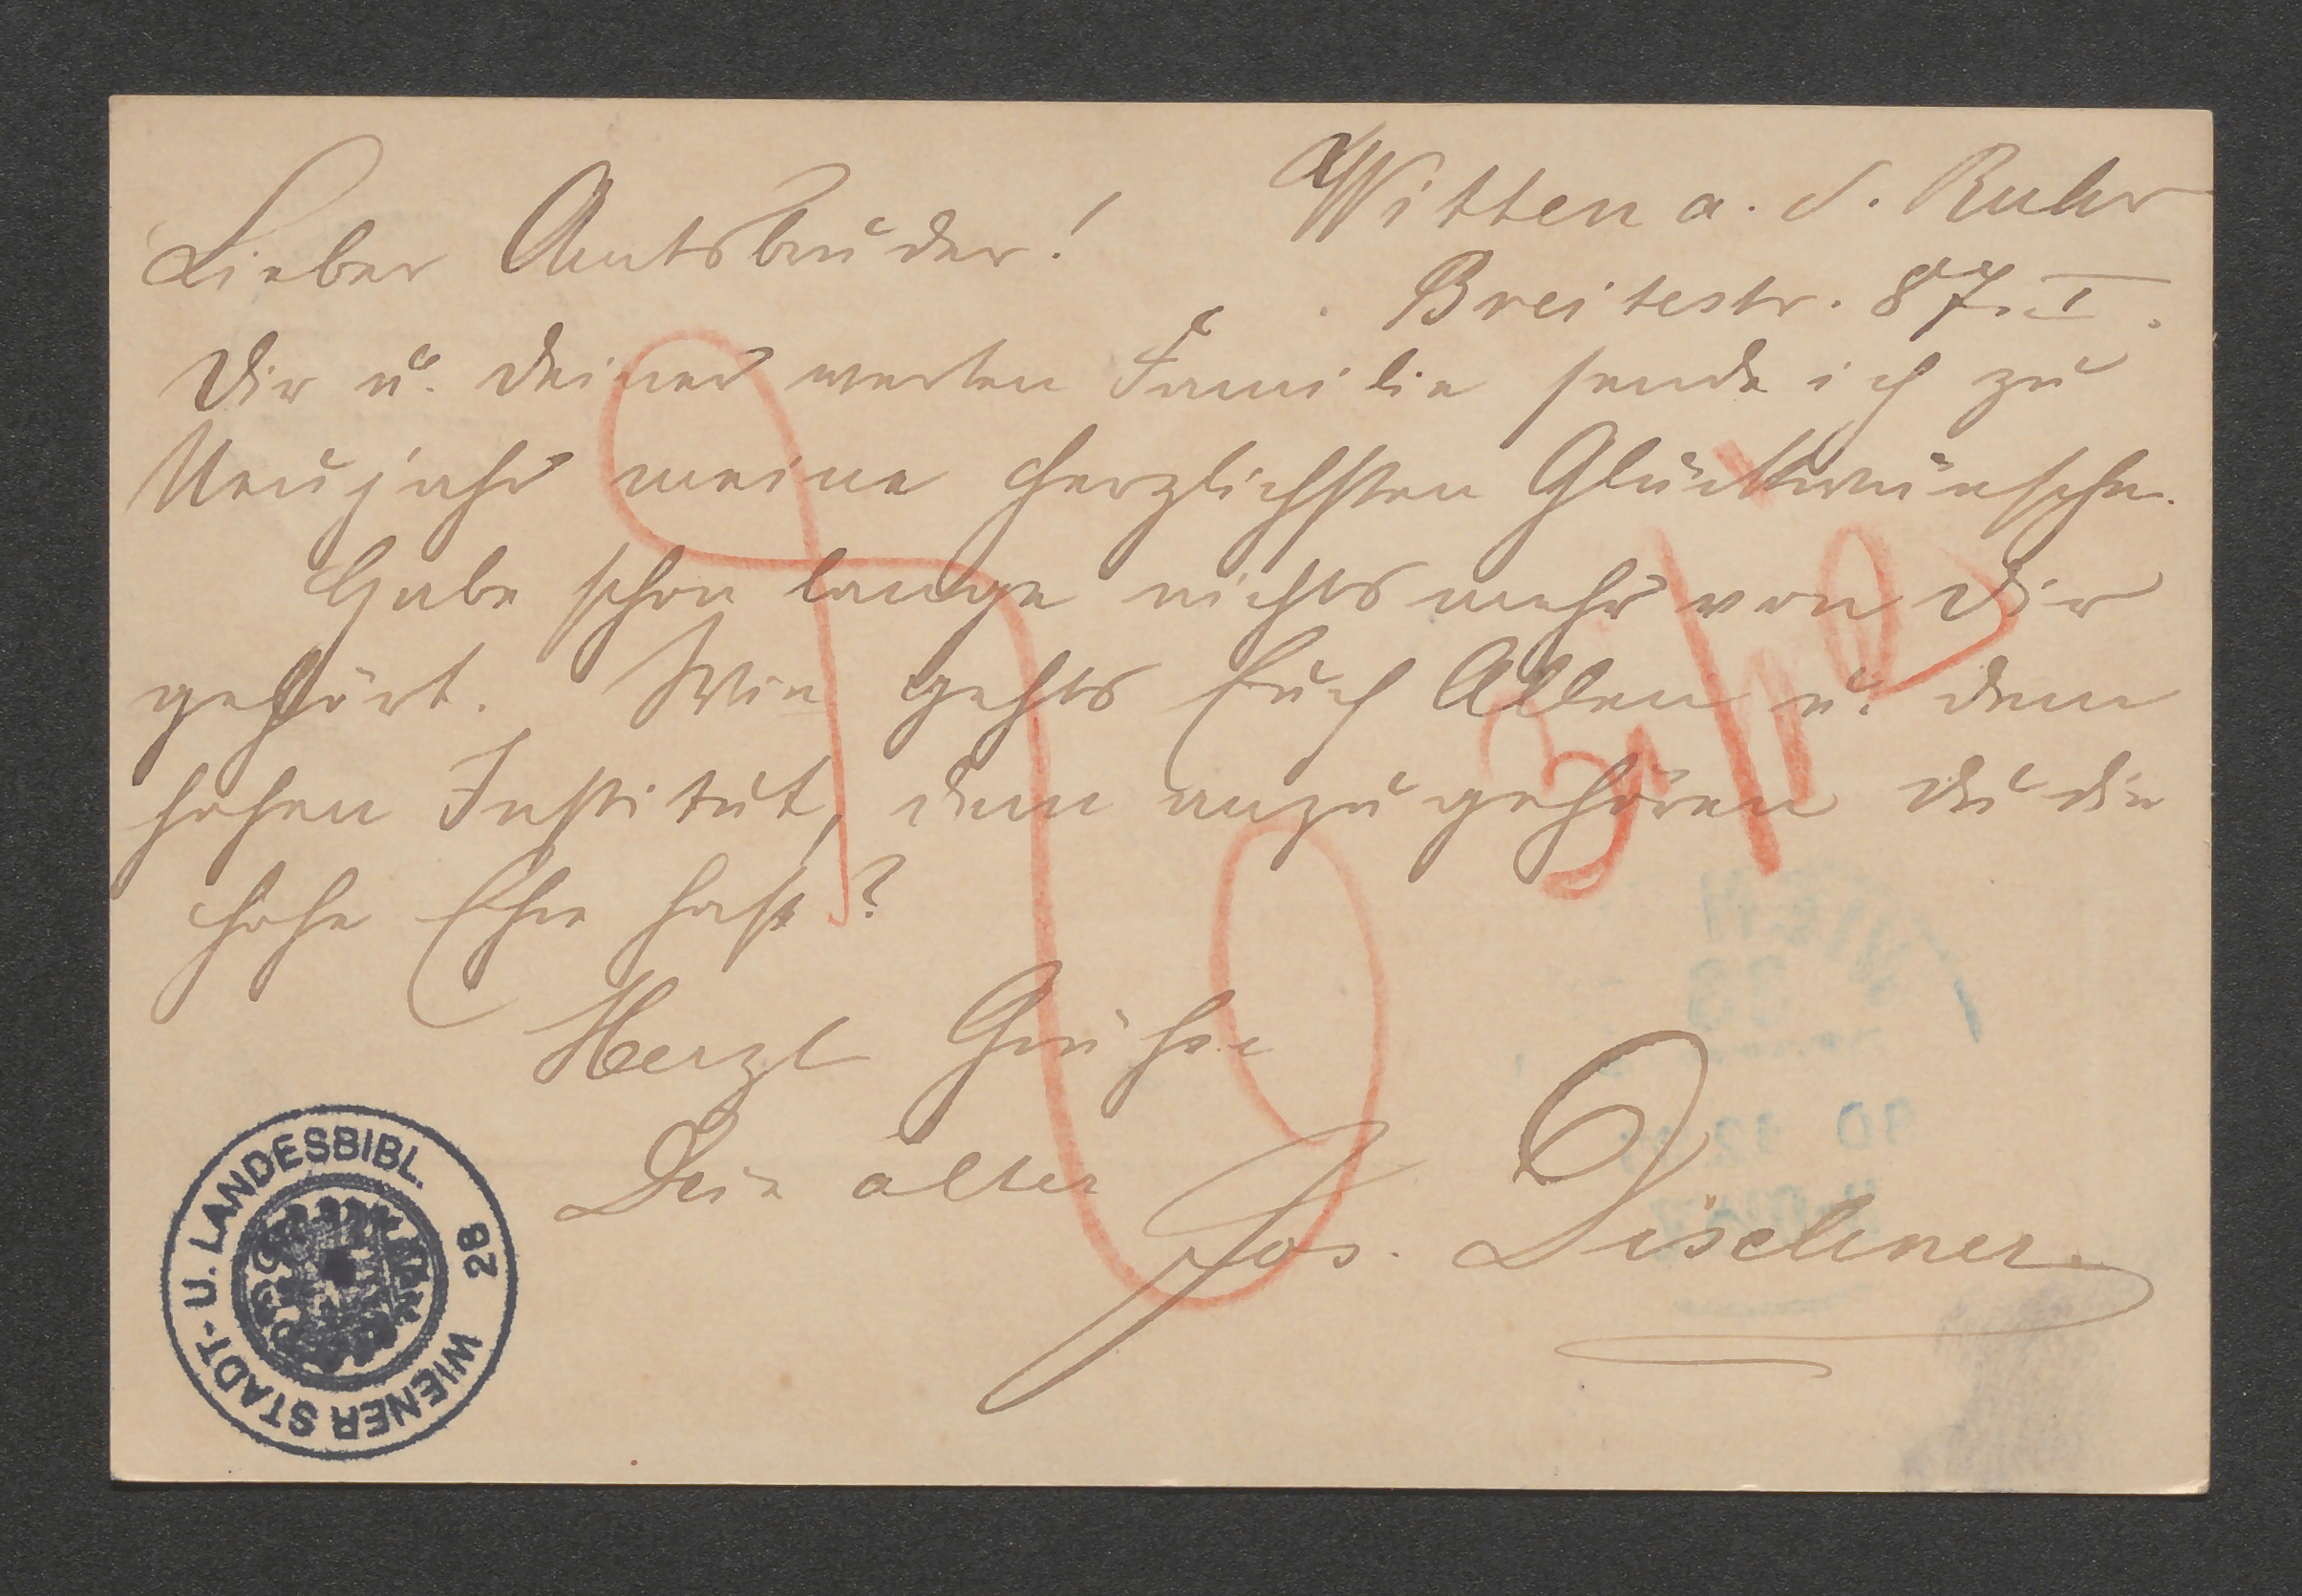 Witten a. d. Ruhr
Breitestr. 87. I.
Lieber Amtsbruder!
Dir u. Deiner werten Familie sende ich zu
Neujahr meine herzlichsten Glückwünsche.
Habe schon lange nichts mehr von Dir
gehört. Wie gehts Euch Allen u. dem
hohen Institut, dem anzugehören Du die
hohe Ehre hast?
Herzl Grüße
Dein alter
Jos. Dischner.
WIENER STADT- U. LANDESBIBL. 28